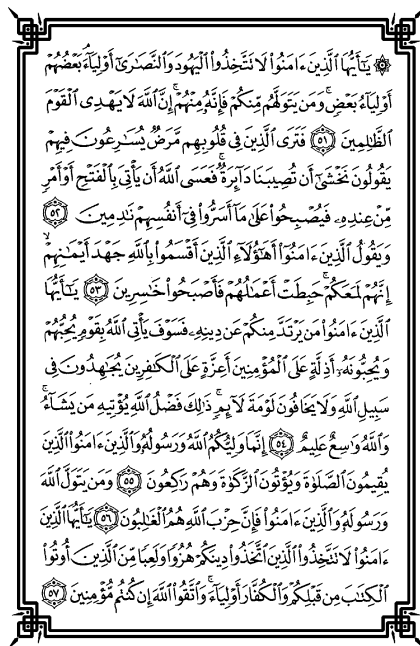 ۞ يَٰٓأَيُّهَا ٱلَّذِينَ ءَامَنُوا۟ لَا تَتَّخِذُوا۟ ٱلْيَهُودَ وَٱلنَّصَٰرَىٰٓ أَوْلِيَآءَ ۘ بَعْضُهُمْ
أَوْلِيَآءُ بَعْضٍ ۚ وَمَن يَتَوَلَّهُم مِّنكُمْ فَإِنَّهُۥ مِنْهُمْ ۗ إِنَّ ٱللَّهَ لَا يَهْدِى ٱلْقَوْمَ
ٱلظَّٰلِمِينَ ٥١ فَتَرَى ٱلَّذِينَ فِى قُلُوبِهِم مَّرَضٌ يُسَٰرِعُونَ فِيهِمْ
يَقُولُونَ نَخْشَىٰٓ أَن تُصِيبَنَا دَآئِرَةٌ ۚ فَعَسَى ٱللَّهُ أَن يَأْتِىَ بِٱلْفَتْحِ أَوْ أَمْرٍ
مِّنْ عِندِهِۦ فَيُصْبِحُوا۟ عَلَىٰ مَآ أَسَرُّوا۟ فِىٓ أَنفُسِهِمْ نَٰدِمِينَ ٥٢
وَيَقُولُ ٱلَّذِينَ ءَامَنُوٓا۟ أَهَٰٓؤُلَآءِ ٱلَّذِينَ أَقْسَمُوا۟ بِٱللَّهِ جَهْدَ أَيْمَٰنِهِمْ ۙ
إِنَّهُمْ لَمَعَكُمْ ۚ حَبِطَتْ أَعْمَٰلُهُمْ فَأَصْبَحُوا۟ خَٰسِرِينَ ٥٣ يَٰٓأَيُّهَا
ٱلَّذِينَ ءَامَنُوا۟ مَن يَرْتَدَّ مِنكُمْ عَن دِينِهِۦ فَسَوْفَ يَأْتِى ٱللَّهُ بِقَوْمٍ يُحِبُّهُمْ
وَيُحِبُّونَهُۥٓ أَذِلَّةٍ عَلَى ٱلْمُؤْمِنِينَ أَعِزَّةٍ عَلَى ٱلْكَٰفِرِينَ يُجَٰهِدُونَ فِى
سَبِيلِ ٱللَّهِ وَلَا يَخَافُونَ لَوْمَةَ لَآئِمٍ ۚ ذَٰلِكَ فَضْلُ ٱللَّهِ يُؤْتِيهِ مَن يَشَآءُ ۚ
وَٱللَّهُ وَٰسِعٌ عَلِيمٌ ٥٤ إِنَّمَا وَلِيُّكُمُ ٱللَّهُ وَرَسُولُهُۥ وَٱلَّذِينَ ءَامَنُوا۟ ٱلَّذِينَ
يُقِيمُونَ ٱلصَّلَوٰةَ وَيُؤْتُونَ ٱلزَّكَوٰةَ وَهُمْ رَٰكِعُونَ ٥٥ وَمَن يَتَوَلَّ ٱللَّهَ
وَرَسُولَهُۥ وَٱلَّذِينَ ءَامَنُوا۟ فَإِنَّ حِزْبَ ٱللَّهِ هُمُ ٱلْغَٰلِبُونَ ٥٦ يَٰٓأَيُّهَا ٱلَّذِينَ
ءَامَنُوا۟ لَا تَتَّخِذُوا۟ ٱلَّذِينَ ٱتَّخَذُوا۟ دِينَكُمْ هُزُوًا وَلَعِبًا مِّنَ ٱلَّذِينَ أُوتُوا۟
ٱلْكِتَٰبَ مِن قَبْلِكُمْ وَٱلْكُفَّارَ أَوْلِيَآءَ ۚ وَٱتَّقُوا۟ ٱللَّهَ إِن كُنتُم مُّؤْمِنِينَ ٥٧